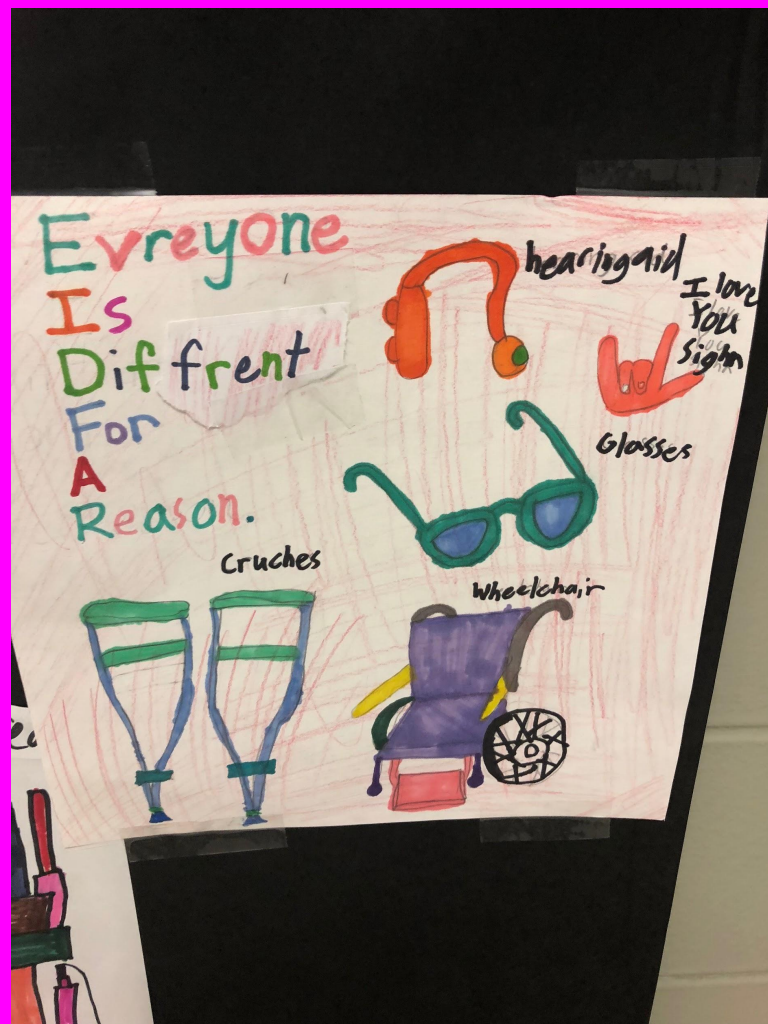 Evreyone
Is
Diffrent
For
A
Reason.
hearingaid
I love
You
Sighn
Glasses
Cruches
Wheelchair